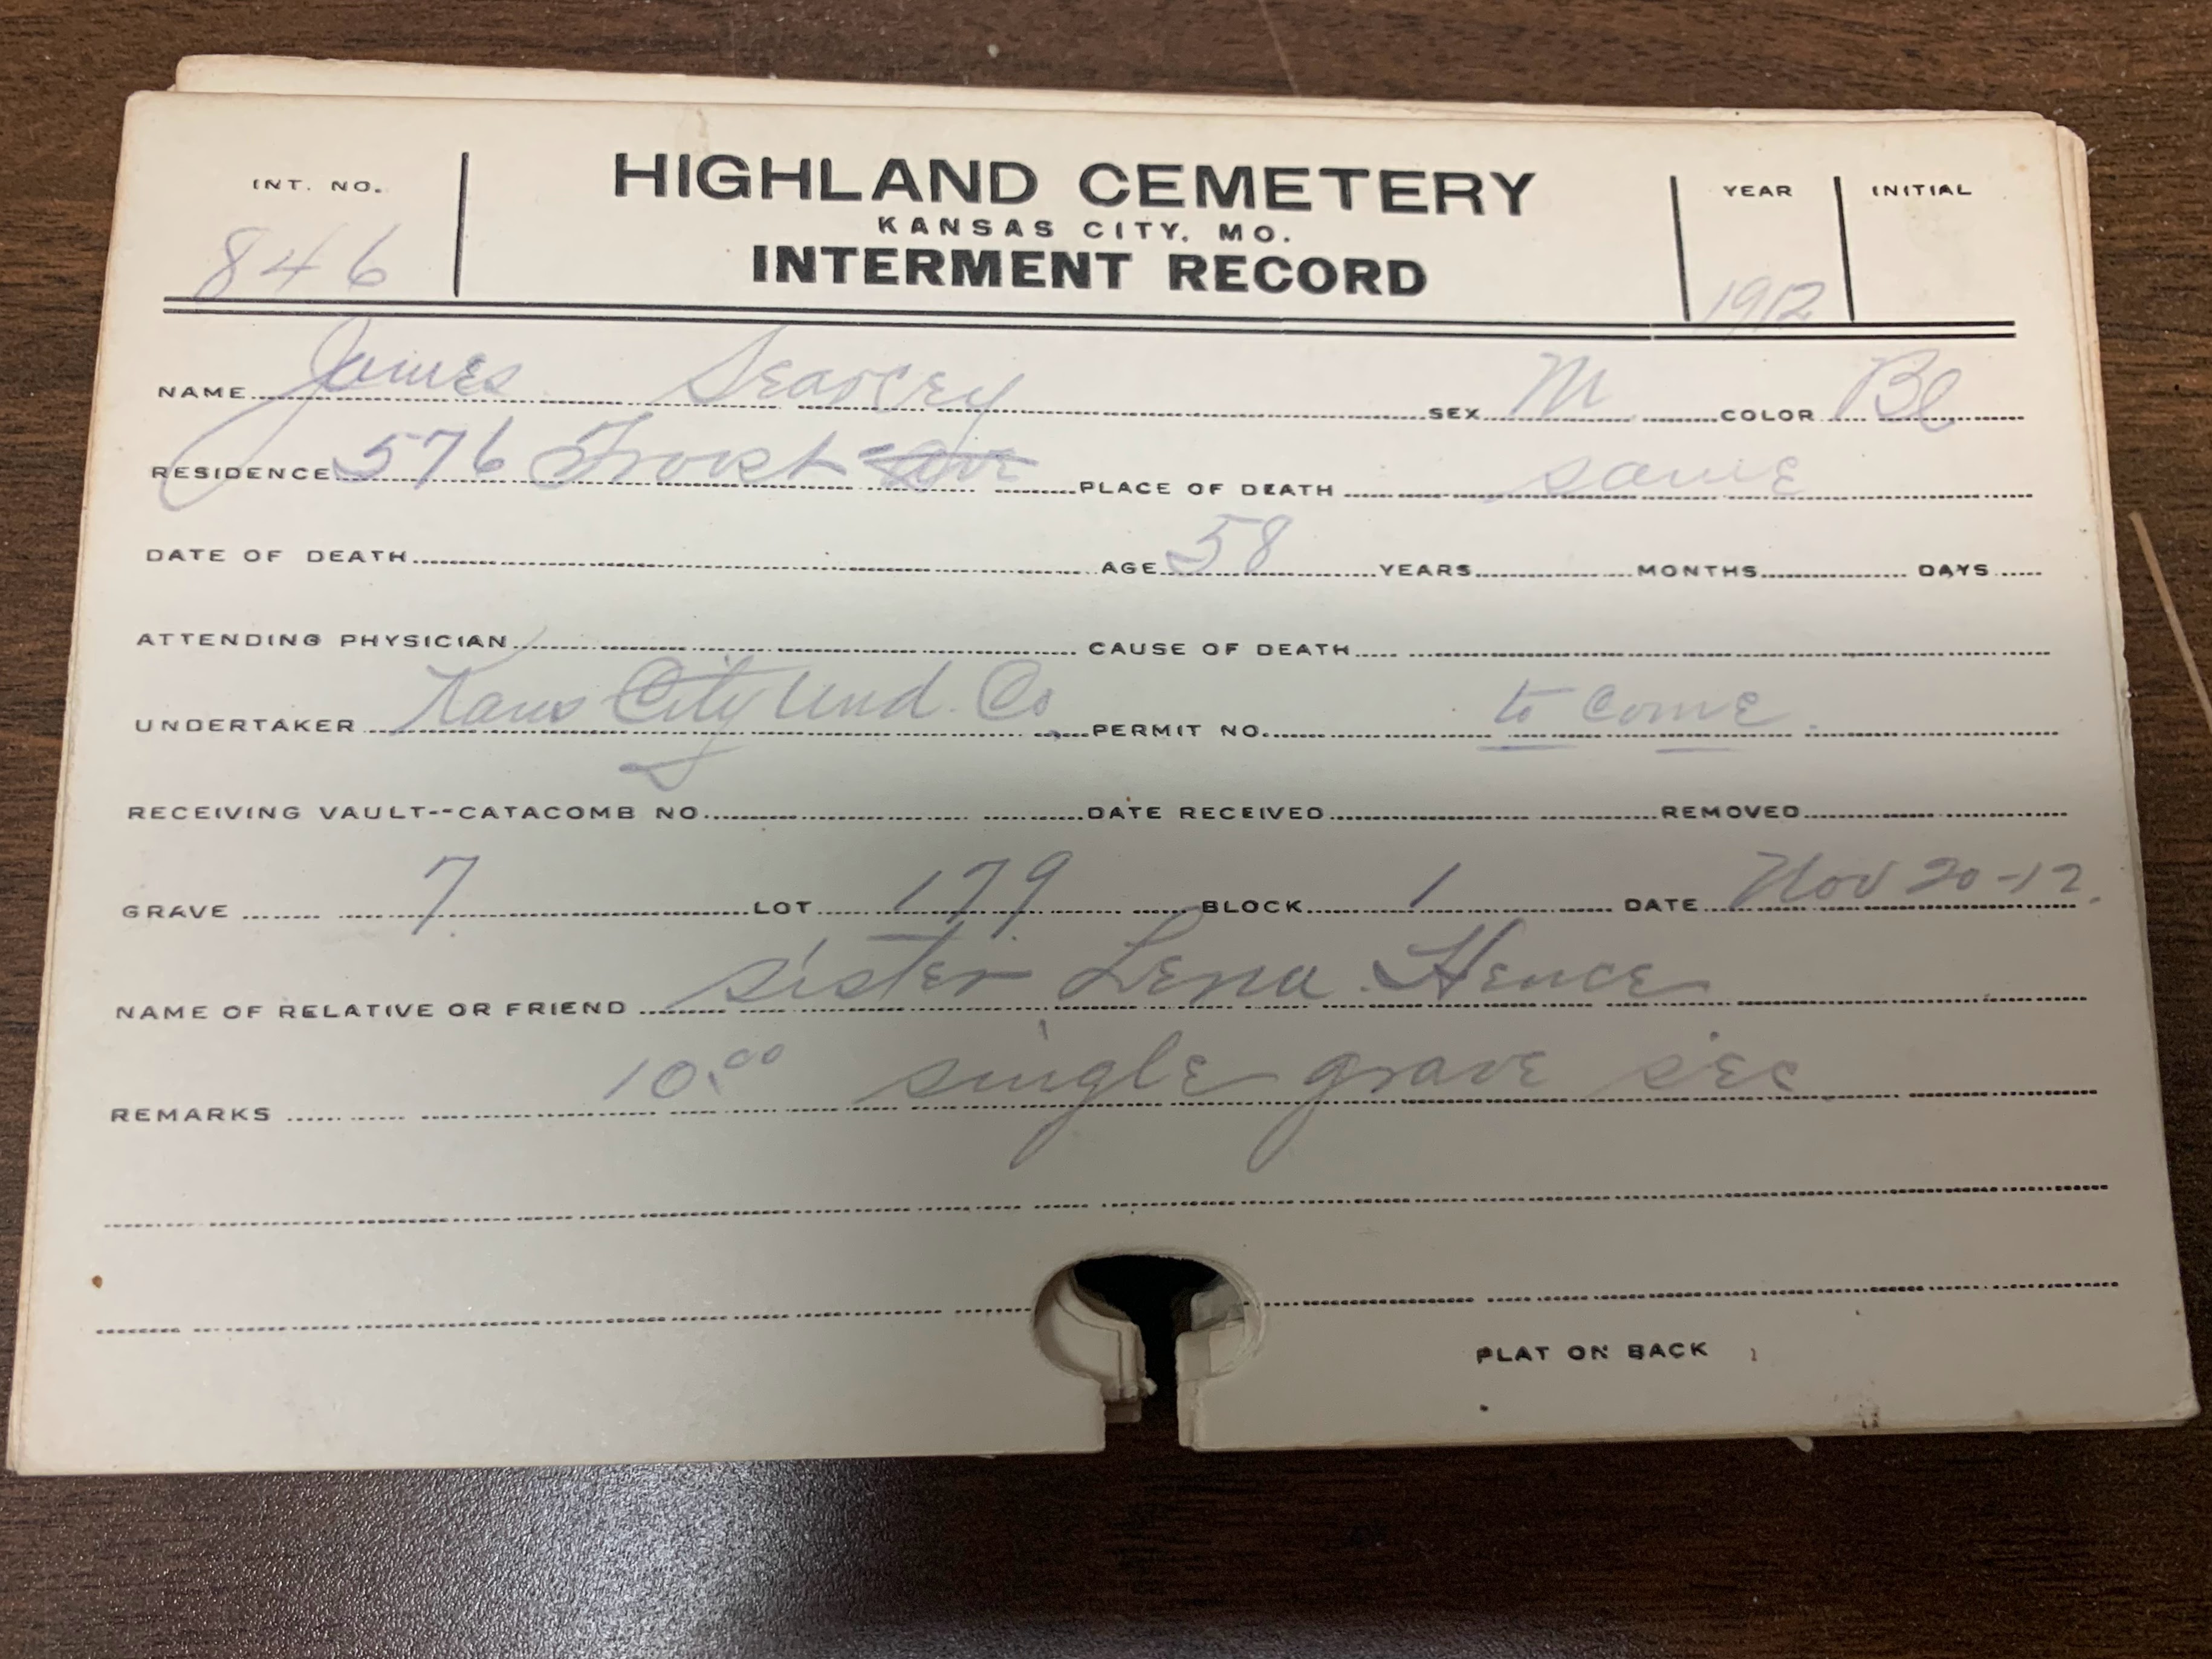 INT. NO. HIGHLAND CEMETERY YEAR INITIAL
KANSAS CITY, MO.
846 INTERMENT RECORD 1912
NAME James Searcey SEX M COLOR Bl
RESIDENCE 576 Troost Ave PLACE OF DEATH same
DATE OF DEATH AGE 58 YEARS MONTHS DAYS
ATTENDING PHYSICIAN CAUSE OF DEATH
UNDERTAKER Kans City Und. Co PERMIT NO. to come.
RECEIVING VAULT--CATACOMB NO. DATE RECEIVED REMOVED
GRAVE 7 LOT 179 BLOCK 1 DATE Nov 20-12.
NAME OF RELATIVE OR FRIEND sister Lena Hence
REMARKS 10.00 single grave sec
PLAT ON BACK